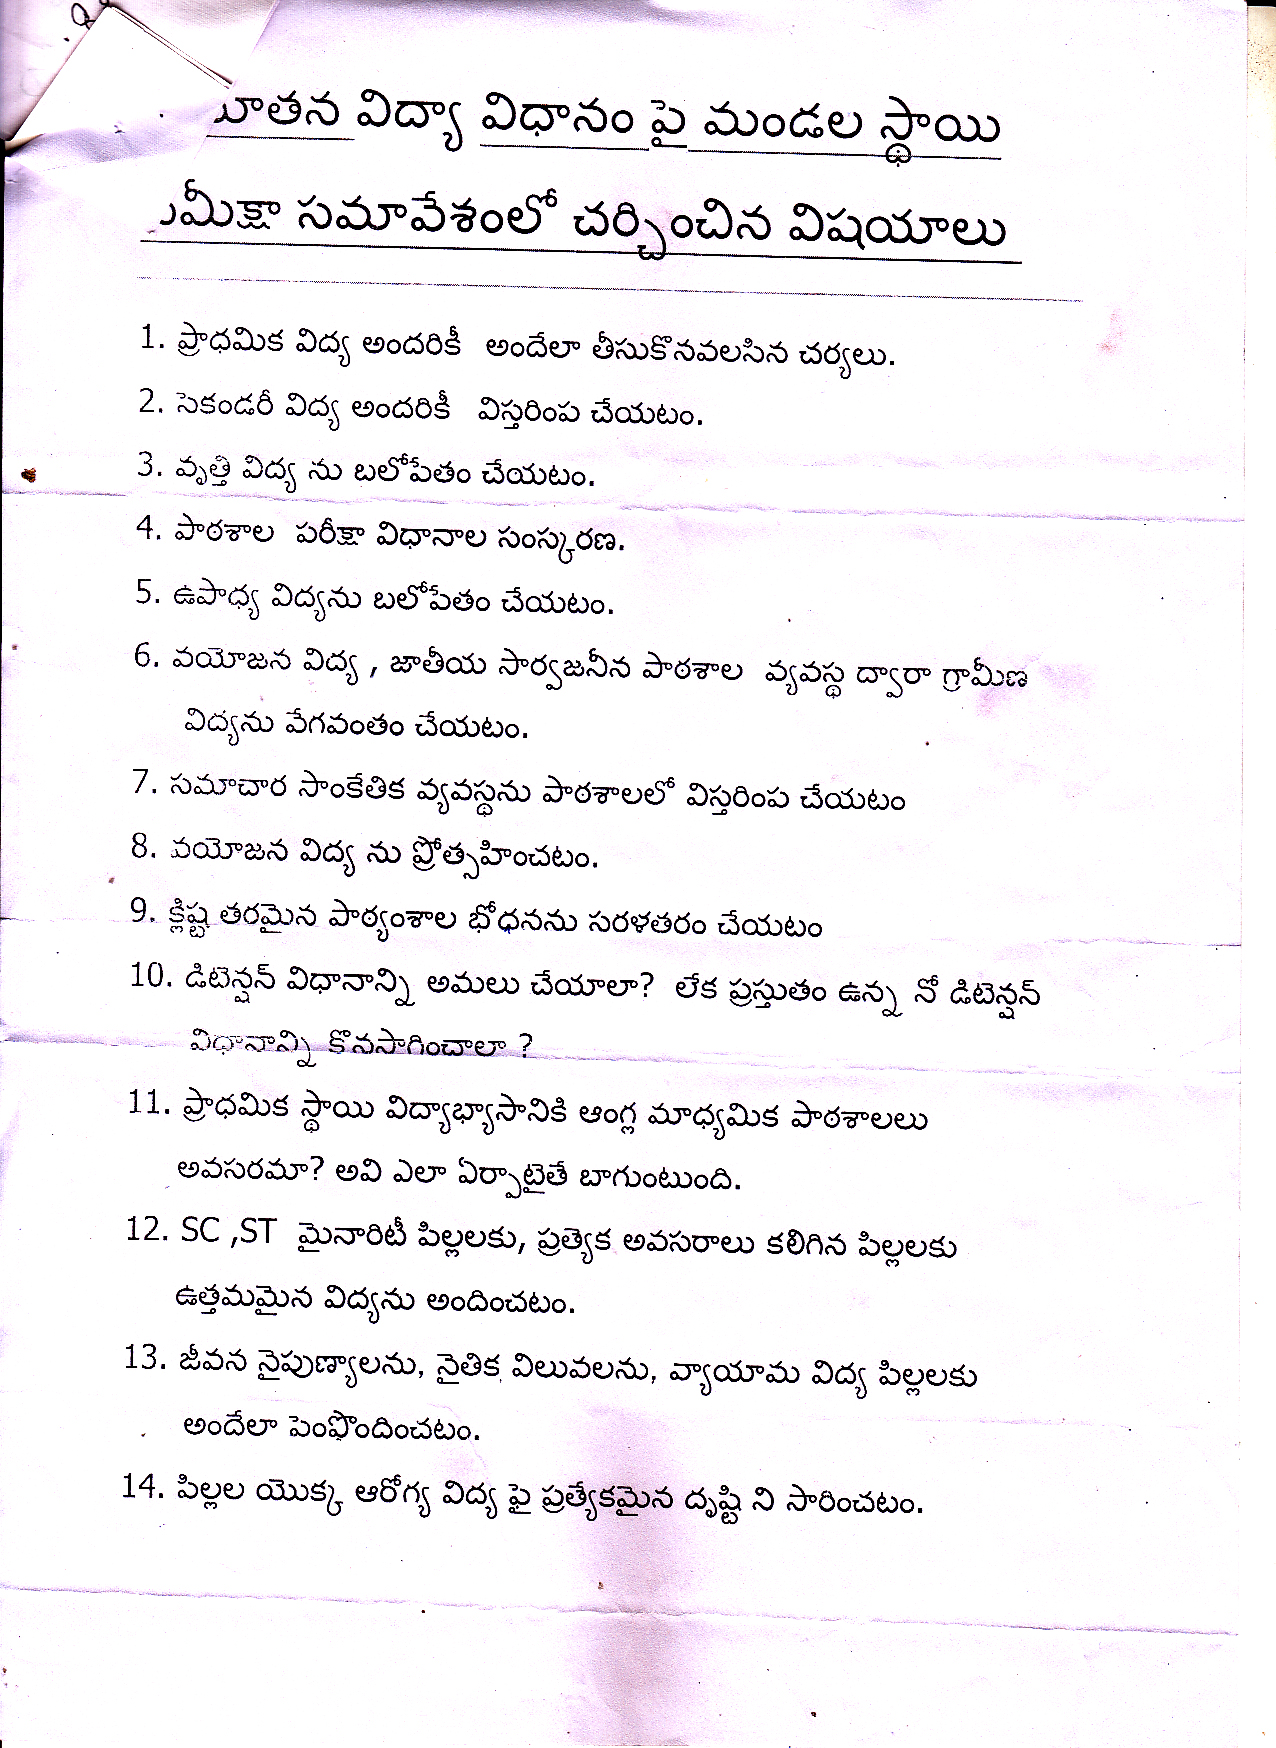 నూతన విద్యా విధానం పై మండల స్థాయి
సమీక్షా సమావేశంలో చర్చించిన విషయాలు
1. ప్రాధమిక విద్య అందరికీ అందేలా తీసుకొనవలసిన చర్యలు.
2. సెకండరీ విద్య అందరికీ విస్తరింప చేయటం.
3. వృత్తి విద్య ను బలోపేతం చేయటం.
4. పాఠశాల పరీక్షా విధానాల సంస్కరణ.
5. ఉపాధ్య విద్యను బలోపేతం చేయటం.
6. వయోజన విద్య , జాతీయ సార్వజనీన పాఠశాల వ్యవస్థ ద్వారా గ్రామీణ
విద్యను వేగవంతం చేయటం.
7. సమాచార సాంకేతిక వ్యవస్థను పాఠశాలలో విస్తరింప చేయటం
8. వయోజన విద్య ను ప్రోత్సహించటం.
9. క్లిష్ట తరమైన పాఠ్యంశాల భోధనను సరళతరం చేయటం
10. డిటెన్షన్ విధానాన్ని అమలు చేయాలా? లేక ప్రస్తుతం ఉన్న నో డిటెన్షన్
విధానాన్ని కొనసాగించాలా ?
11. ప్రాధమిక స్థాయి విద్యాభ్యాసానికి ఆంగ్ల మాధ్యమిక పాఠశాలలు
అవసరమా? అవి ఎలా ఏర్పాటైతే బాగుంటుంది.
12. SC ,ST మైనారిటీ పిల్లలకు, ప్రత్యేక అవసరాలు కలిగిన పిల్లలకు
ఉత్తమమైన విద్యను అందించటం.
13. జీవన నైపుణ్యాలను, నైతిక విలువలను, వ్యాయామ విద్య పిల్లలకు
అందేలా పెంపొందించటం.
14. పిల్లల యొక్క ఆరోగ్య విద్య ఫై ప్రత్యేకమైన దృష్టి ని సారించటం.